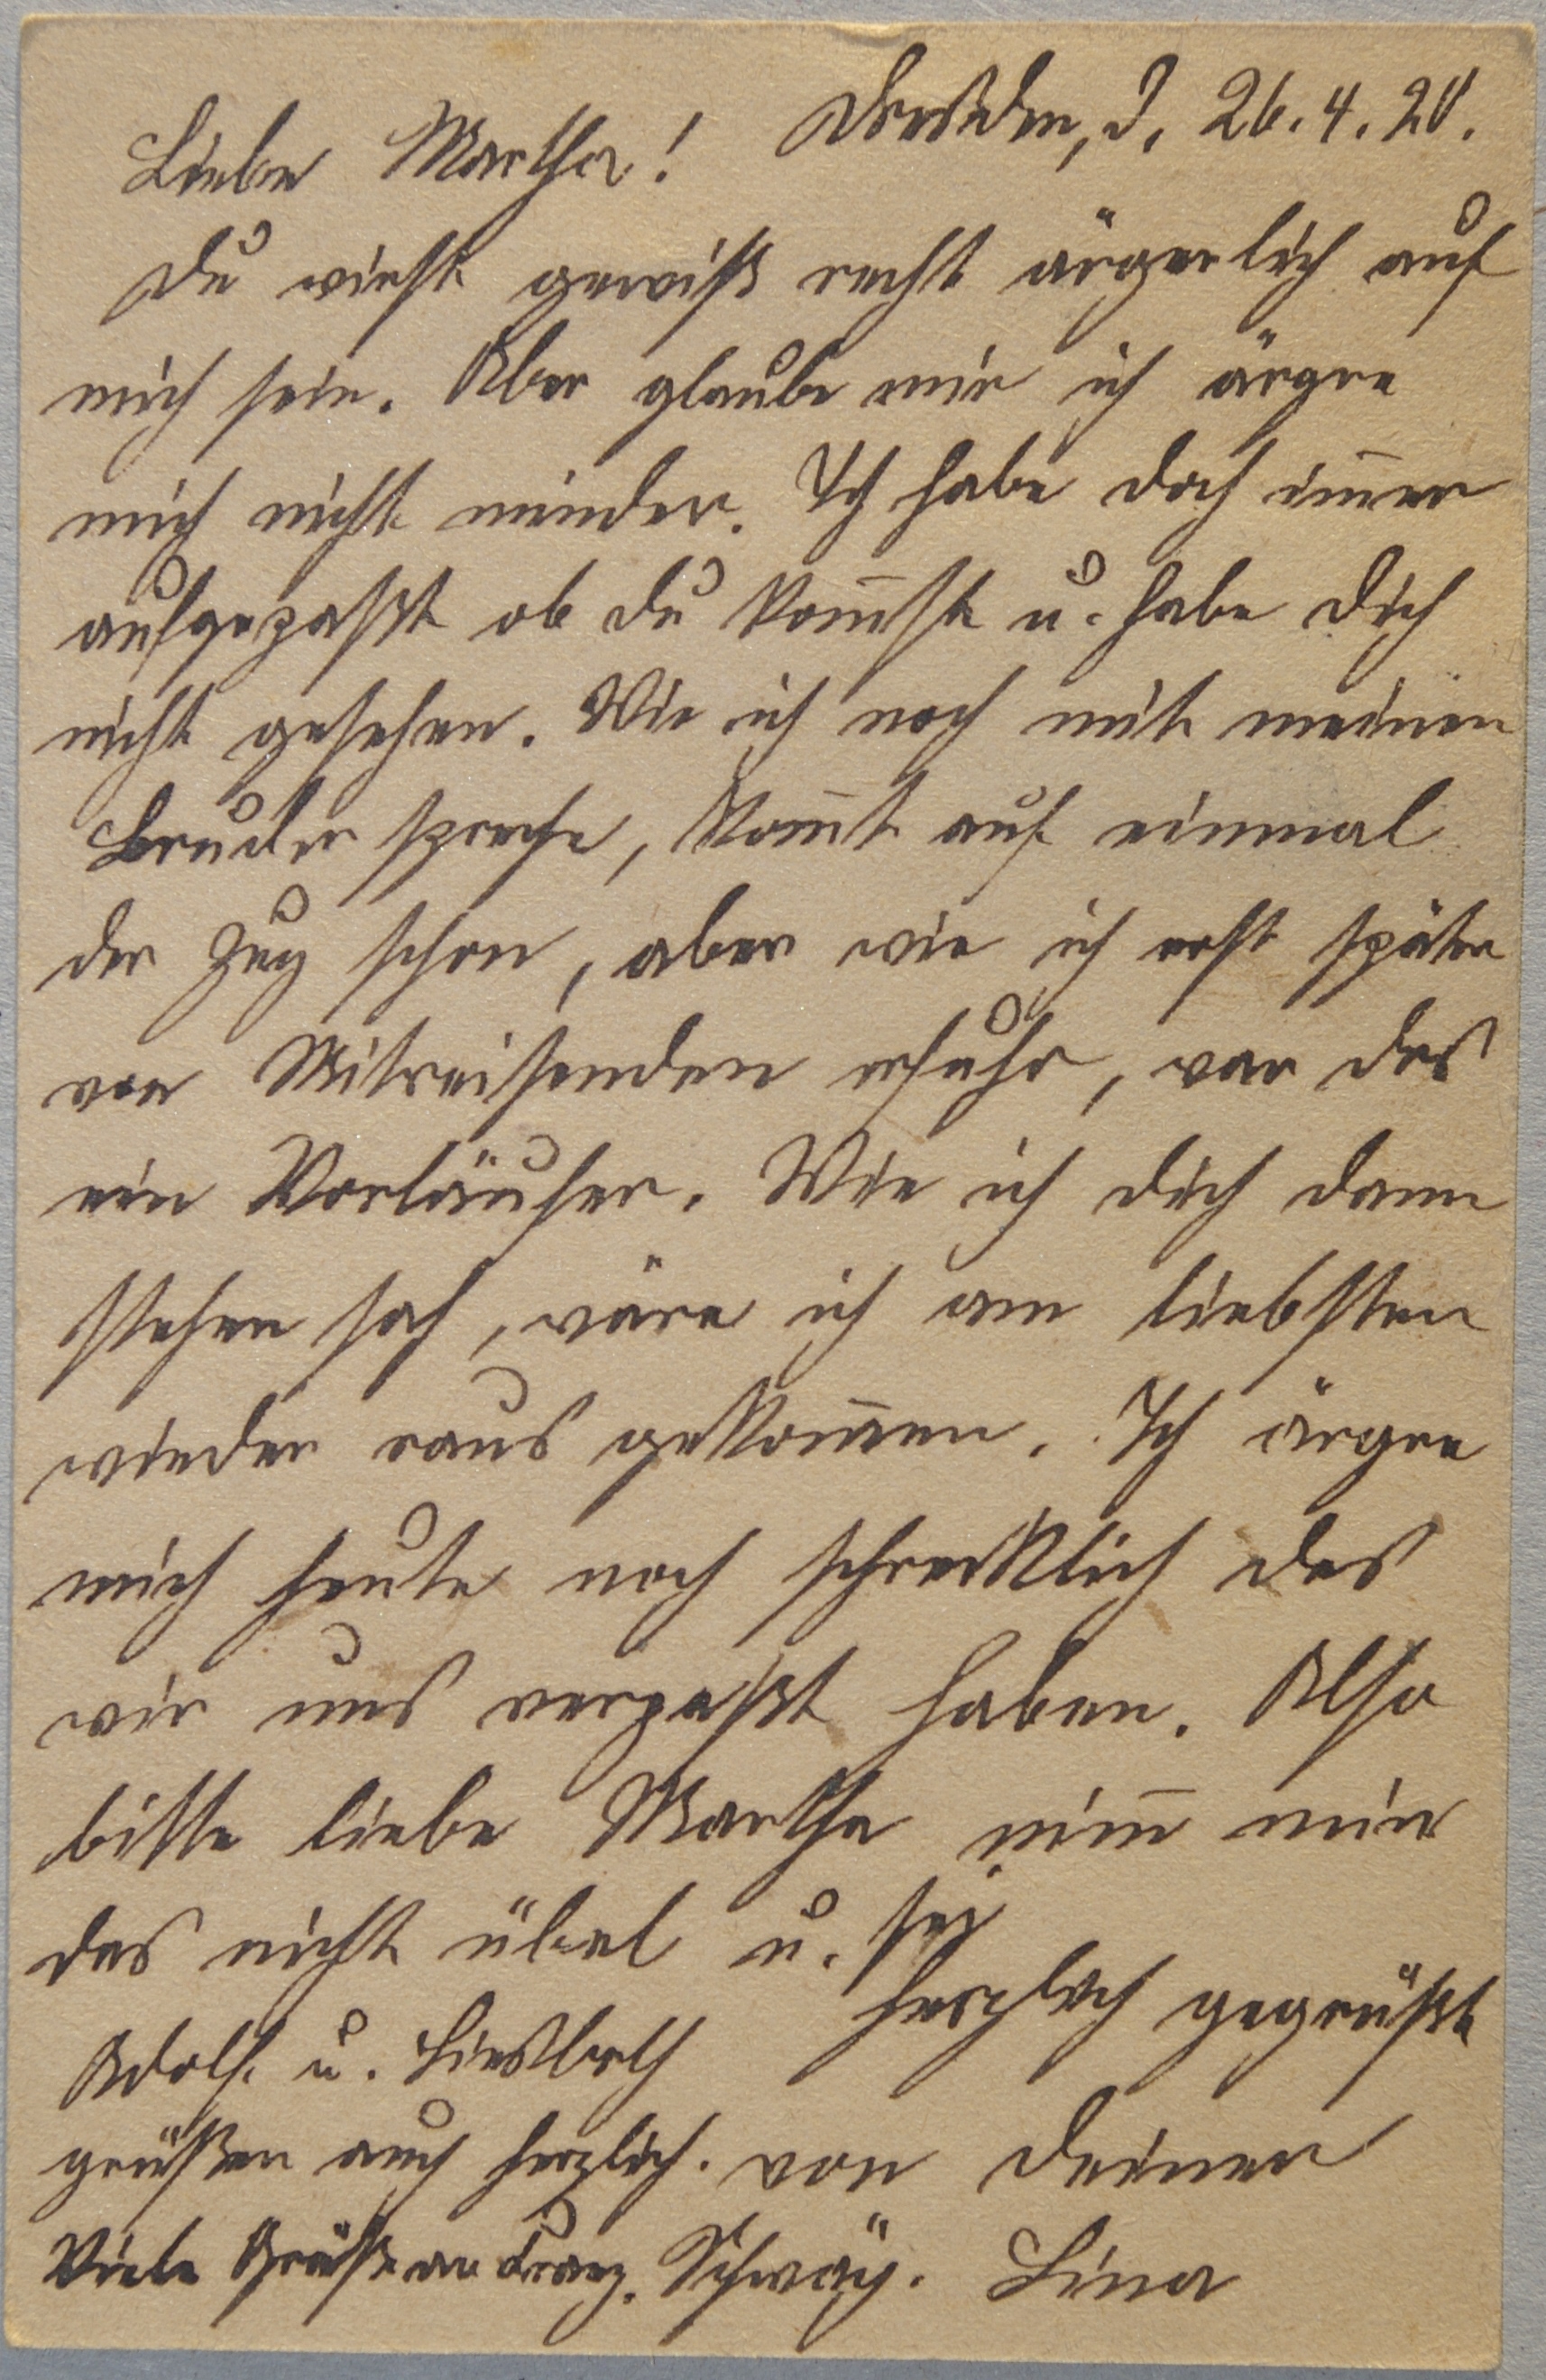 Dresden, d. 26.4.20.
Liebe Martha!
Du wirst gewiß recht ärgerlich auf
mich sein. Aber glaube mir ich ärgre
mich nicht minder. Ich habe doch im̅er
aufgepaßt ob du kom̅st u. habe dich
nicht gesehen. Wie ich noch mit meinen
Bruder spreche, kom̅t auf einmal
der Zug schon, aber wie ich erst später
von Mitreisenden erfuhr, war das
ein Vorläufer. Wie ich dich dann
stehen sah, wäre ich am liebsten
wieder raus gekom̅en. Ich ärgre
mich heute noch schrecklich das
wir uns verpaßt haben. Also
bitte liebe Martha nim̅ mir
das nicht übel u. sei
herzlich gegrüßt
Adolf u. Liesbeth
grüßen auch herzlich. von deiner
Viele Grüße an Franz. Schwäg. Lina